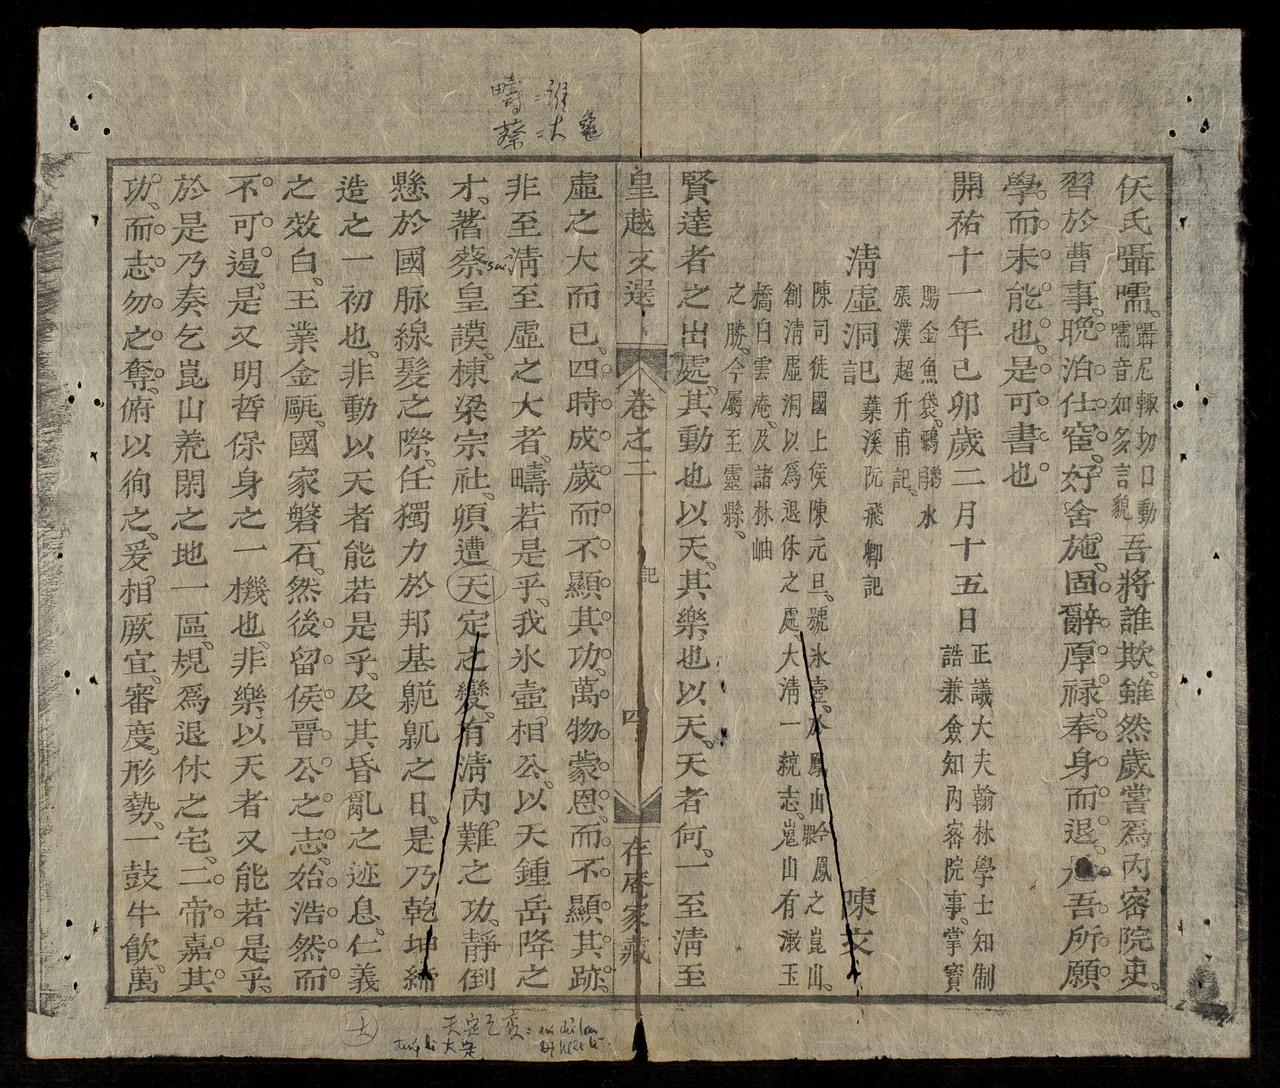 疇=誰
蔡=大龜
仸氏囁嚅囁尼輙切口動嚅音如多言貌吾將誰欺雖然歲嘗爲內密院吏
習於曹事晩泊仕宦好舍施固辭厚祿奉身而退是吾所願
學而未能也是可書也
開祐十一年己卯歲二月十五日正議大夫翰林學士知制誥兼僉知內密院事掌寶
賜金魚袋鸛鸖水
張漢超升甫記
淸虛洞記蘂溪阮飛卿記陳文
陳司徒國上侯陳元旦號氷壺於鳳山今鳳眼之崑山
創淸虛洞以爲退休之處大淸一統志崑山有漱玉
橋白雲庵及諸林岫
之勝今屬至靈縣
賢達者之出處其動也以天其樂也以天天者何一至淸至
皇越文選 卷之二 記 四 存庵家藏
虛之大而已四時成歲而不顯其功萬物蒙恩而不顯其跡
非至淸至虛之大者疇若是乎我氷壺相公以天鍾岳降之
才蓍蔡皇謨棟梁宗社頃遭天定之變有淸內難之功靜倒
懸於國脉線髮之際任獨力於邦基臲卼之日是乃乾坤締
造之一初也非動以天者能若是乎及其昏亂之迹息仁義
之效白王業金甌國家磐石然後留侯晋公之志始浩然而
不可遏是又明哲保身之一機也非樂以天者又能若是乎
於是乃奏乞崑山荒閑之地一區規爲退休之宅二帝嘉其
功而志勿之奪俯以徇之爰相厥宜審度形勢一鼓牛飮萬
天定之變=
大定